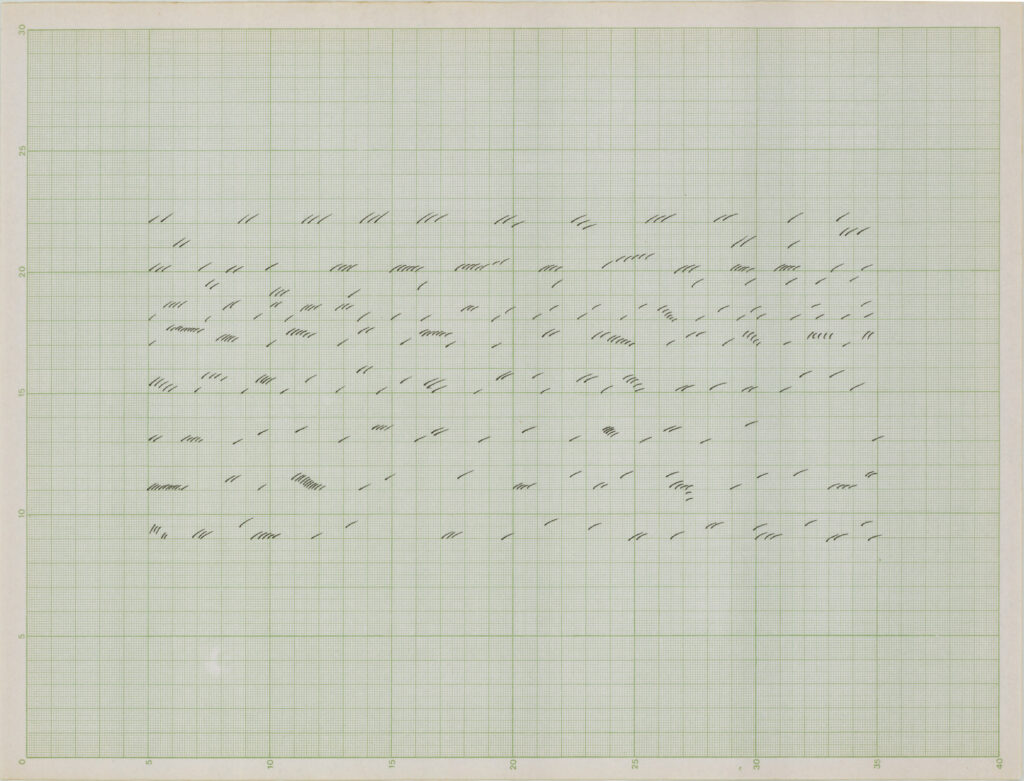 30
25
20
15
10
5
0 5 10 15 20 25 30 35 40